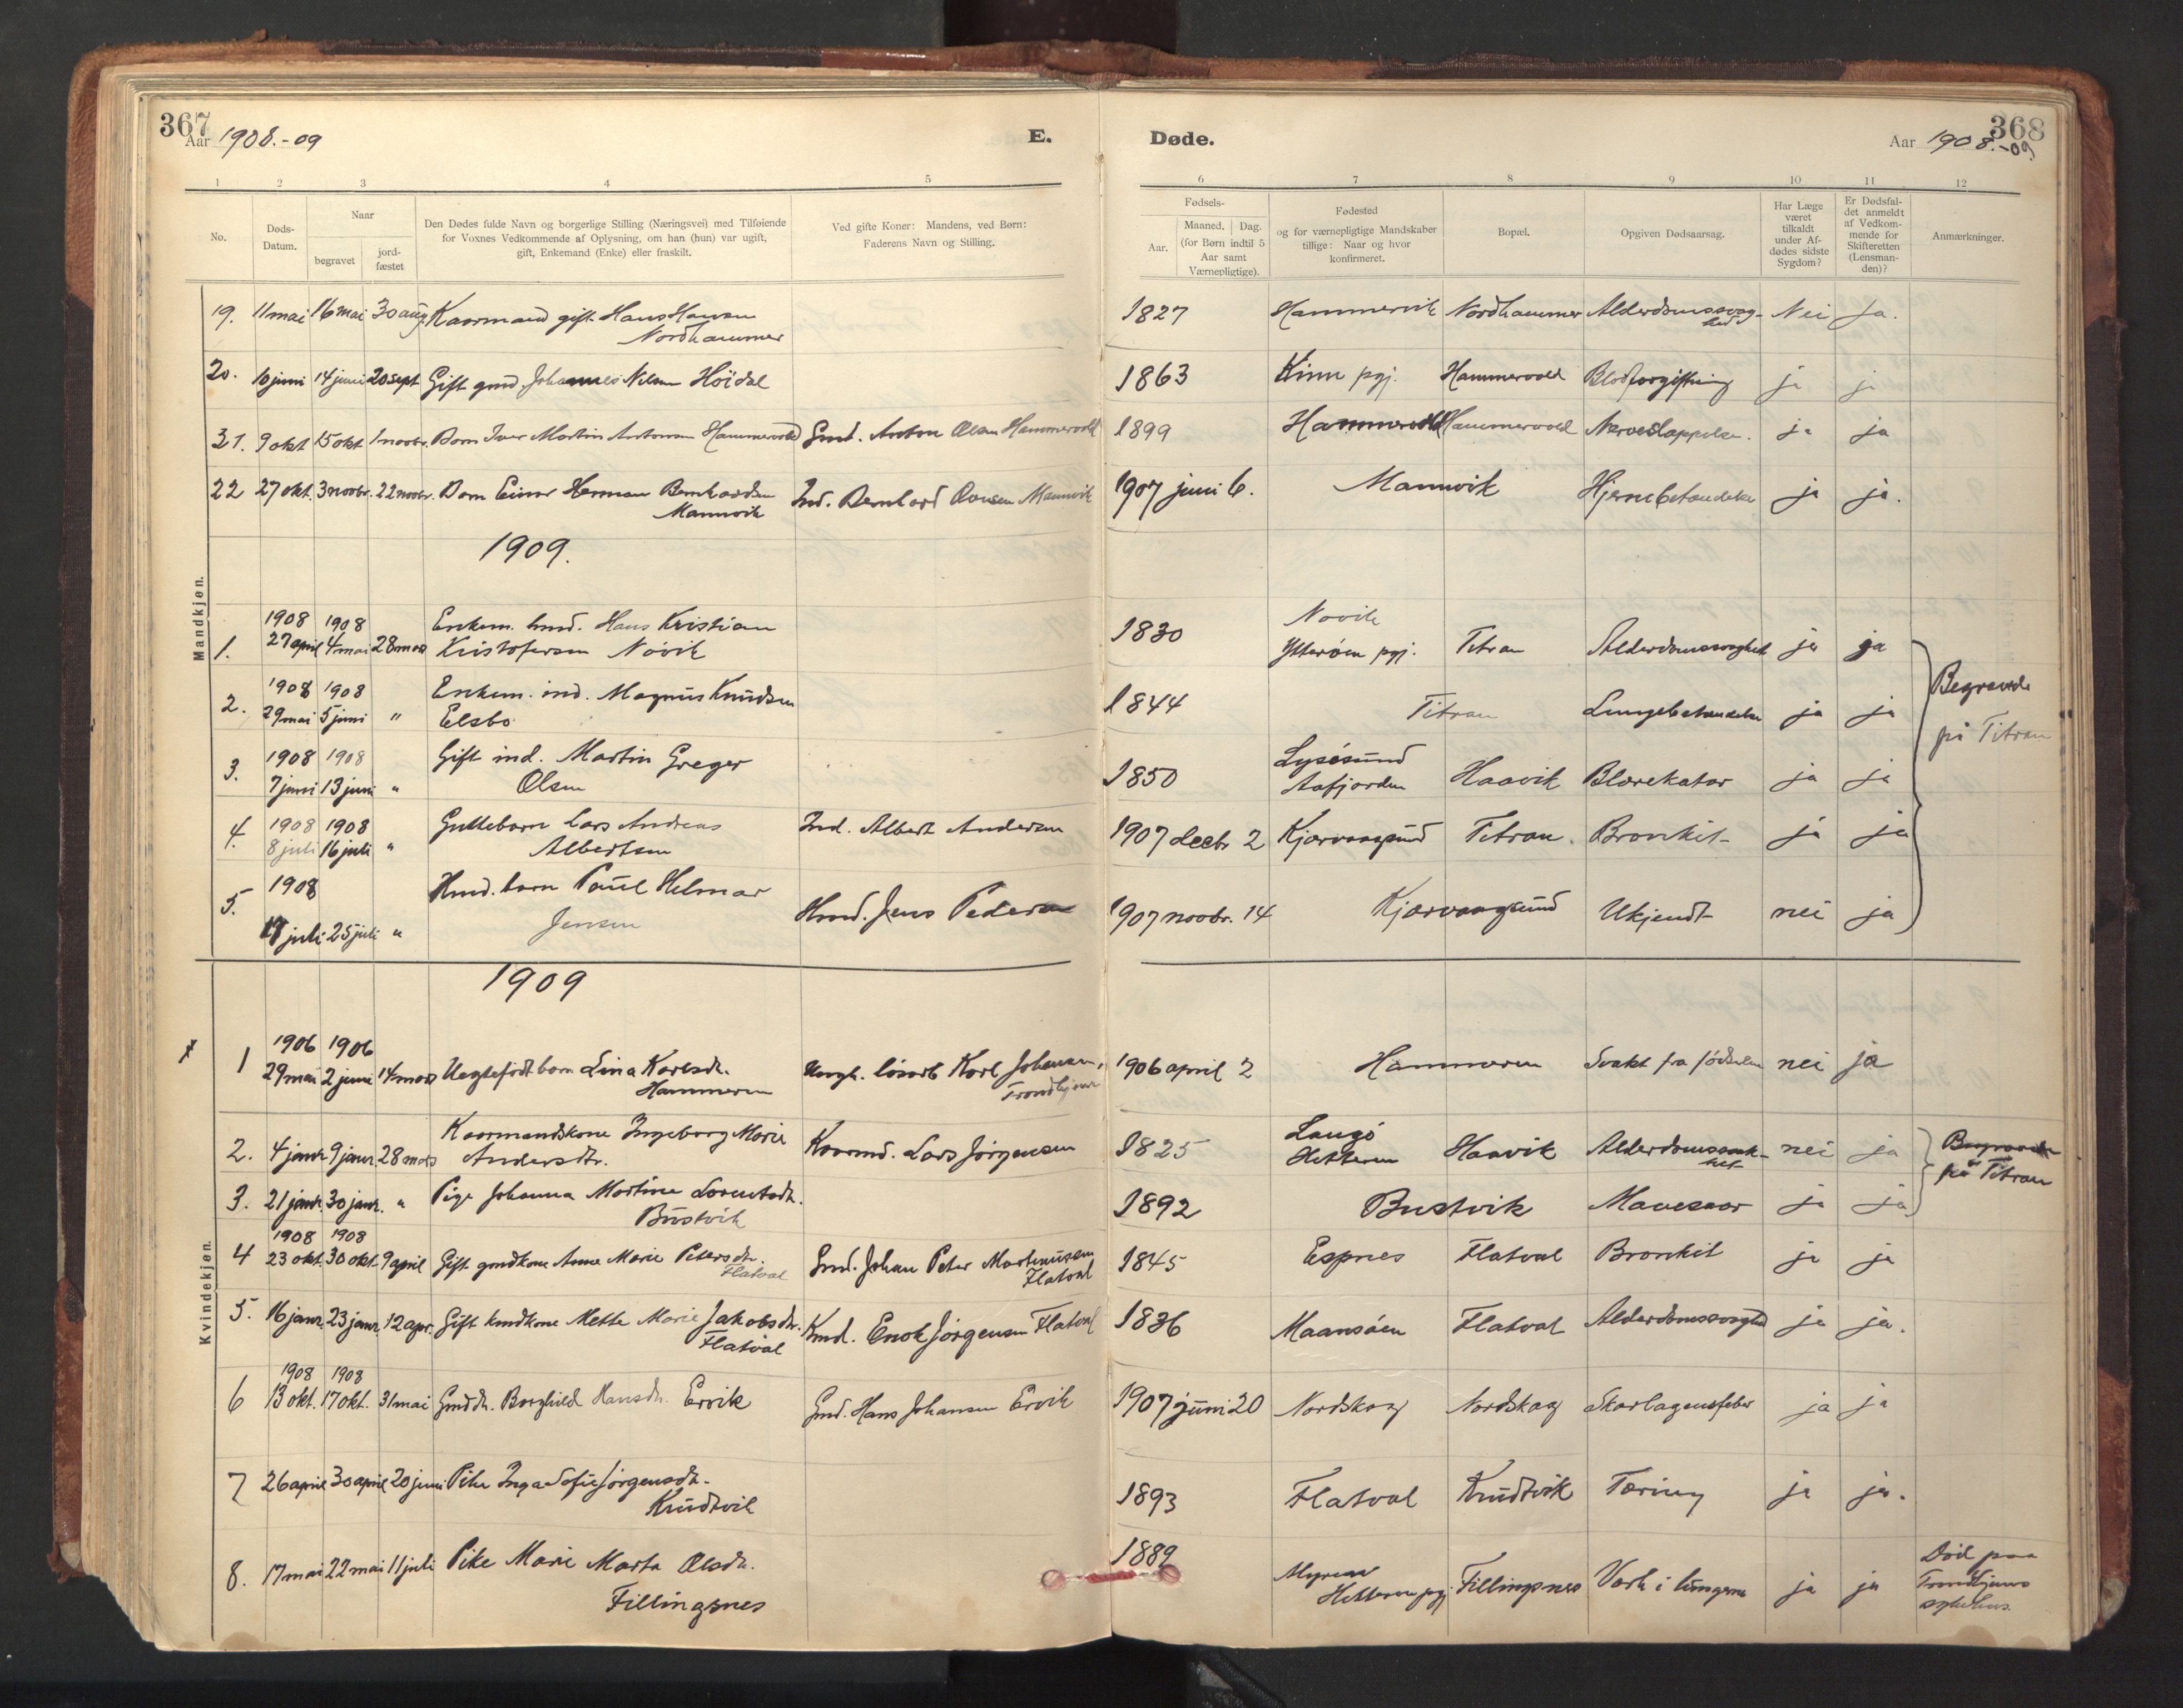 367
Aar 1908.-09
E.
Døde.
Aar 1908.-09
368
1 2 3 4 5 6 7 8 9 10 11 12
No.
Døds-
Datum.
Naar
begravet
jord-
fæstet
Den Dødes fulde Navn og borgerlige Stilling (Næringsvei) med Tilføiende
for Voxnes Vedkommende af Oplysning, om han (hun) var ugift,
gift, Enkemand (Enke) eller fraskilt.
Ved gifte Koner: Mandens, ved Børn:
Faderens Navn og Stilling.
Fødsels-
Aar.
Maaned. Dag.
(for Børn indtil 5
Aar samt
Værnepligtige).
Fødested
og for værnepligtige Mandskaber
tillige: Naar og hvor
konfirmeret.
Bopæl.
Opgiven Dødsaarsag.
Har Læge
været
tilkaldt
under Af-
dødes sidste
Sygdom?
Er Dødsfal-
det anmeldt
af Vedkom-
mende for
Skifteretten
(Lensman-
den)?
Anmærkninger.
Mandkjøn.
19. 11 mai 16 mai 30 aug. Kaarmand gift Hans Hansen
Nordhammer
1827 Hammervik Nordhammer Alderdomssvag-
hed Nei Ja.
20. 10 juni 14 juni 20 sept Gift gmd Johannes Nilsen Höidal
1863 Kinn pgj. Hammervold Blodforgiftning ja ja
21. 9 okt 15 okt 1 novbr. Barn Iver Martin Antonsen Hammervold Gmd. Anton Olsen Hammervold
1899 Hammervold Hammervold Nerveslappelse. ja ja
22 27 okt. 3 novbr. 22 novbr. Barn Einar Herman Bernhardsen
Mannvik
Ind. Bernhard Ovesen Mannvik
1907 juni 6. Mannvik Hjernebetændelse ja ja.
1909.
1908 1908
1. 27 april 4 mai 28 mars Enkem. hmd. Hans Kristian
Kristofersen Növik
1830 Novik
Ytterøen pgj. Titran Alderdomssvaghet ja ja
1908 1908
2. 29 mai 5 juni " Enkem. ind. Magnus Knudsen
Elsbo
1844 Titran Lungebetændelse ja ja
Begravede
på Titran
1908 1908
3. 7 juni 13 juni " Gift ind. Martin Greger
Olsen
1850 Lysösund
Aafjorden Haavik Blærekatar ja ja
1908 1908
4. 8 juli 16 juli " Guttebarn Lars Andreas
Albertsen
Ind. Albert Andersen
1907 decbr 2 Kjærvaagsund Titran. Bronkit ja ja
1908
5. 17 juli 25 juli " Hmd. barn Paul Helmar
Jensen
Hmd. Jens Pedersen
1907 novbr. 14 Kjærvaagsund Ukjendt nei ja
1909
Kvindekjøn.
1906 1906
1 29 mai 2 juni 14 mars Uegtefödt barn Lina Karlsdtr.
Hammeren
Ungk. lösarb Karl Johansen,
Trondhjem
1906 april 2 Hammeren Svakt fra födselen nei ja
2. 4 janr. 9 janr. 28 mars Kaarmandskone Ingeborg Marie
Andersdtr.
Kaarmd. Lars Jörgensen
1825 Langö
Hitteren Haavik Alderdomssvak-
het nei ja
Begravede
på Titran
3. 21 janr. 30 janr. " Pige Johanna Martine Lorentsdtr.
Bustvik
1892 Bustvik Mavesaar ja ja
1908 1908
4 23 okt. 30 okt. 9 april Gift gmdkone Anne Marie Petersdtr.
Flatval
Gmd. Johan Peter Martinusen
Flatval
1845 Espnes Flatval Bronkit ja ja
5. 16 janr. 23 janr. 12 apr. Gift kmdkone Mette Marie Jakobsdtr.
Flatval
Kmd. Enok Jörgensen Flatval
1836 Maansöen Flatval Alderdomssvaghed ja ja.
1908 1908
6 13 okt. 17 okt. 31 mai Gmddtr. Borghild Hansdtr. Ervik
Gmd. Hans Johansen Ervik
1907 juni 20 Nordskag Nordskag Skarlagensfeber ja ja
7 26 april 30 april 20 juni Pike Inga Sofie Jörgensdtr.
Knudtvik
1893 Flatval Knudtvik Tæring ja ja.
8. 17 mai 22 mai 11 juli Pike Marie Marta Olsdtr.
Fillingsnes
1889 Hitteren pgj Fillingsnes Værk i lungerne ja ja
Död paa
Trondhjems
sykehus.